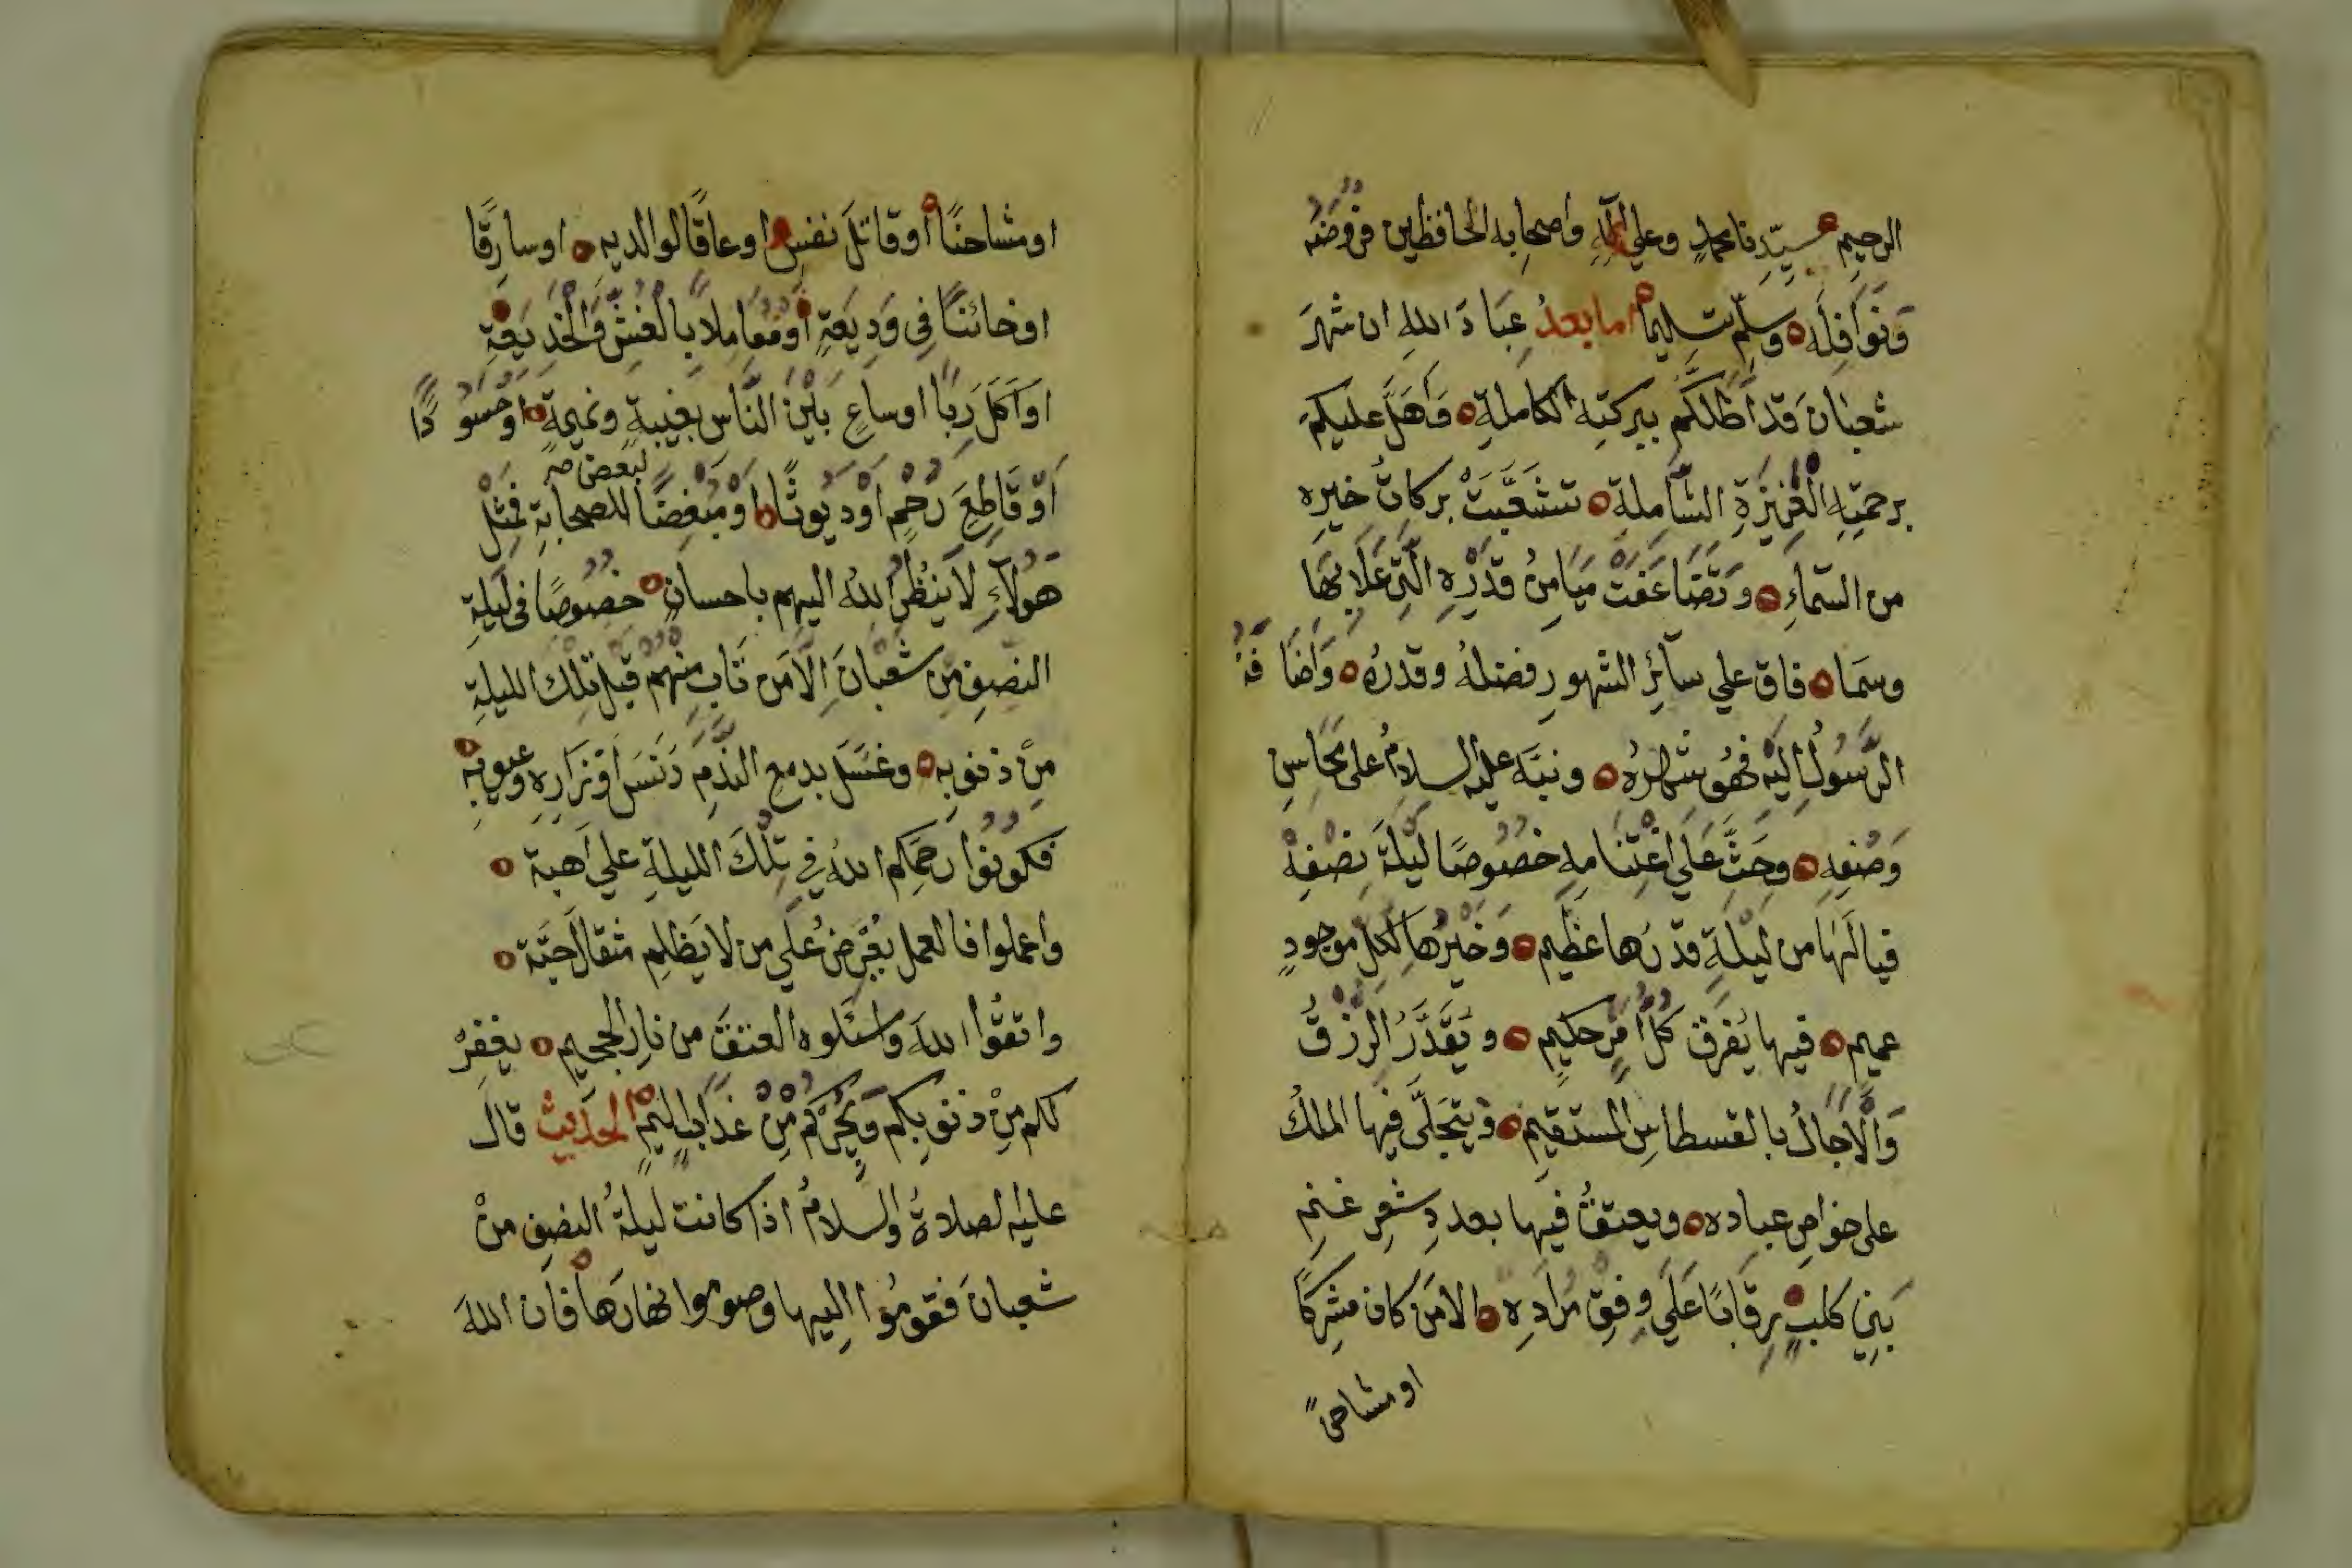 الرحيم سيّدنا محمدٍ وعلي آله واصحابه الحافظين فروضَه
وَنوَافِلَه وسلِّم تسليماً اما بعدُ عِبَادَ الله ان شهرَ
شعبَانَ قد أَظلكُم ببركتِه الكاملةِ وَأَهَلَّ عليكم
برحمَتِهِ الغَزِيزَةِ الشّامِلةِ تشَعَّبَتْ بركاتُ خيرِه
من السّماءِ وَتَضَاعَفَتْ مَيَامِنُ قَدْرِهِ الَّتِي عَلَا بِهَا
وسَمَا فاق علي سآئِرِ الشهورِ فضلُهُ وقدرُه وَاَضَافَهُ
الرَّسُولُ اليْهِ فَهُو شهْرُهُ ونبَّه عليه السلامُ على محَاسِنِ
وَصْفِهِ وحَثَّ عَلَي اغْتِنامِهِ خصُوصًا ليْلَةَ نِصْفِهْ
فيا لَهَا من ليْلَةٍ قدْرُها عَظِيم وَخَيْرُهَا لكلِّ موجودٍ
عميم فيها يُفرَقُ كلُّ أمْرٍ حكيمٍ ويُقَدَّرُ الرِّزْقُ
وَالْآجَالُ بالقسطاسِ المستقيمِ ويتجَلَّى فيها الملكُ
على خواصِ عباده ويعتقُ فيها بعددِ شعرِ غنمِ
بَنِي كلبٍ رِقَابًا عَلَي وِفقِ مُرَادِهِ الا مَن كان مشرِكًا
او مشاحنً
او مشاحنًا أو قاتلَ نفسٍ او عاقًا لوالديه او سارِقًا
او خائنًا فِي وَدِيعَةٍ أو مُعَامِلا بالغِشِّ وَالْخَدِيعَةِ
او آكلَ رِبًا او ساعٍ بَيْنَ النَّاس بغِيبةٍ ونميمةٍ او حَسُودًا
أوْ قَاطِعَ رَحْمٍ اوْ دَيُوثًا اوْ مُبْغِضًا لبعض للصحابةِ فمثْلُ
هَؤلآءِ لا يَنْظُرُ اللهُ اليهم باحسانٍ خصُوصًا في لَيلةِ
النصفِ مِن شَعْبَانَ إلَّا مَن تَابَ مِنهُم قَبْل تِلْكَ الليلةِ
مِنْ ذنوبِه وغسَّل بدمعِ النّدَمِ دَنَسَ أوْزَارِهِ وعيوبِهِ
فكُونُوا رحمَكم اللهُ فِي تِلْكَ الليلةِ علي أهبة
واعملوا فالعمل يُعْرَضُ عَلَي من لا يَظلِم مثقالَ حَبَّة
واتقُوا اللهَ واسئلوه العتقَ من نارِ الجحيمِ يغفِرْ
لكم مِنْ ذنوبِكم ويُجِرْكُمْ مِّنْ عَذَابٍ أليْمٍ الحديث قال
عليه الصلاةُ والسلامُ اذا كانت ليلةُ النصفِ منْ
شعبانَ فقومُوا اليها وصوموا نهارَها فان اللهَ